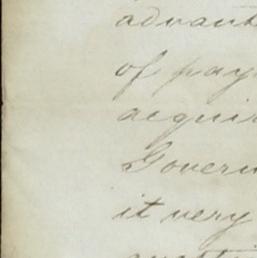 advant
of pay
acquir
Govern
it very